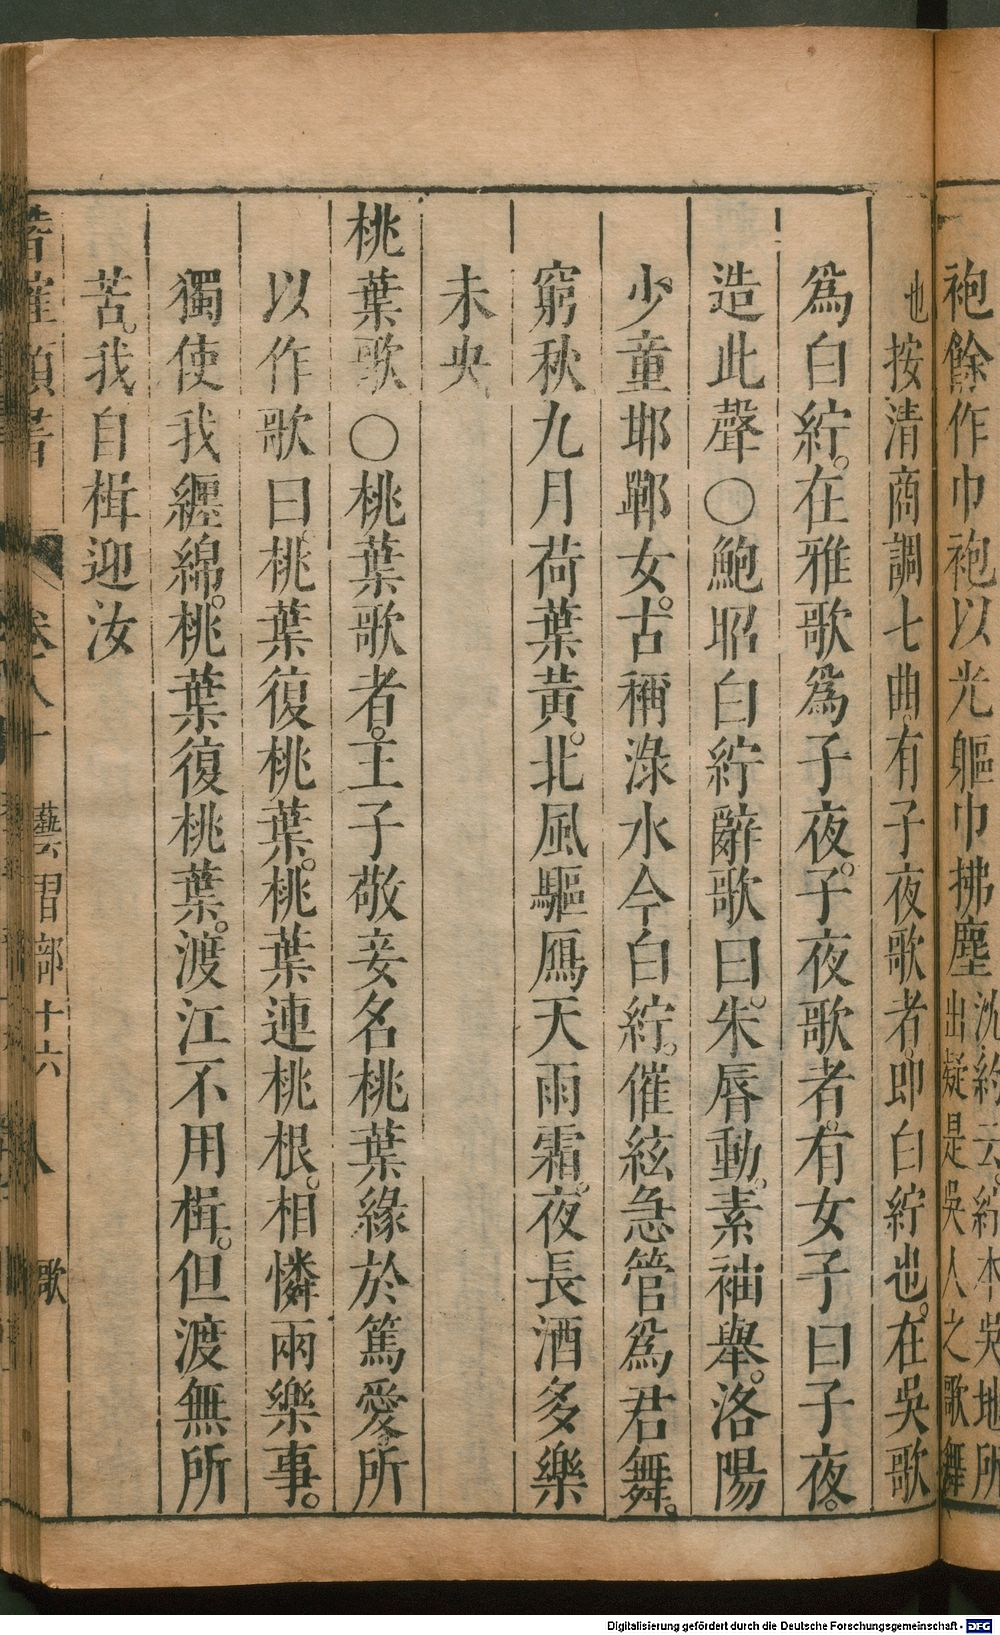 袍餘作巾袍以光軀巾拂塵沈約云紵本吳地所
出疑是吳人之歌舞
也按清商調七曲有子夜歌者即白紵也在吳歌
為白紵。在雅歌為子夜。子夜歌者。有女子曰子夜。
造此聲〇鮑昭白紵辭歌曰。朱唇動。素袖舉。洛陽
少童邯鄲女。古稱淥水今白紵。催絃急管為君舞。
窮秋九月荷葉黃。北風驅鴈天雨霜。夜長酒多樂
未央
桃葉歌〇桃葉歌者。王子敬妾名桃葉緣於篤愛。所
以作歌曰。桃葉復桃葉。桃葉連桃根。相憐兩樂事。
獨使我纏綿。桃葉復桃葉。渡江不用楫。但渡無所
苦。我自楫迎汝
卷八十 藝習部十六 歌
Digitalisierung gefördert durch die Deutsche Forschungsgemeinschaft - DFG